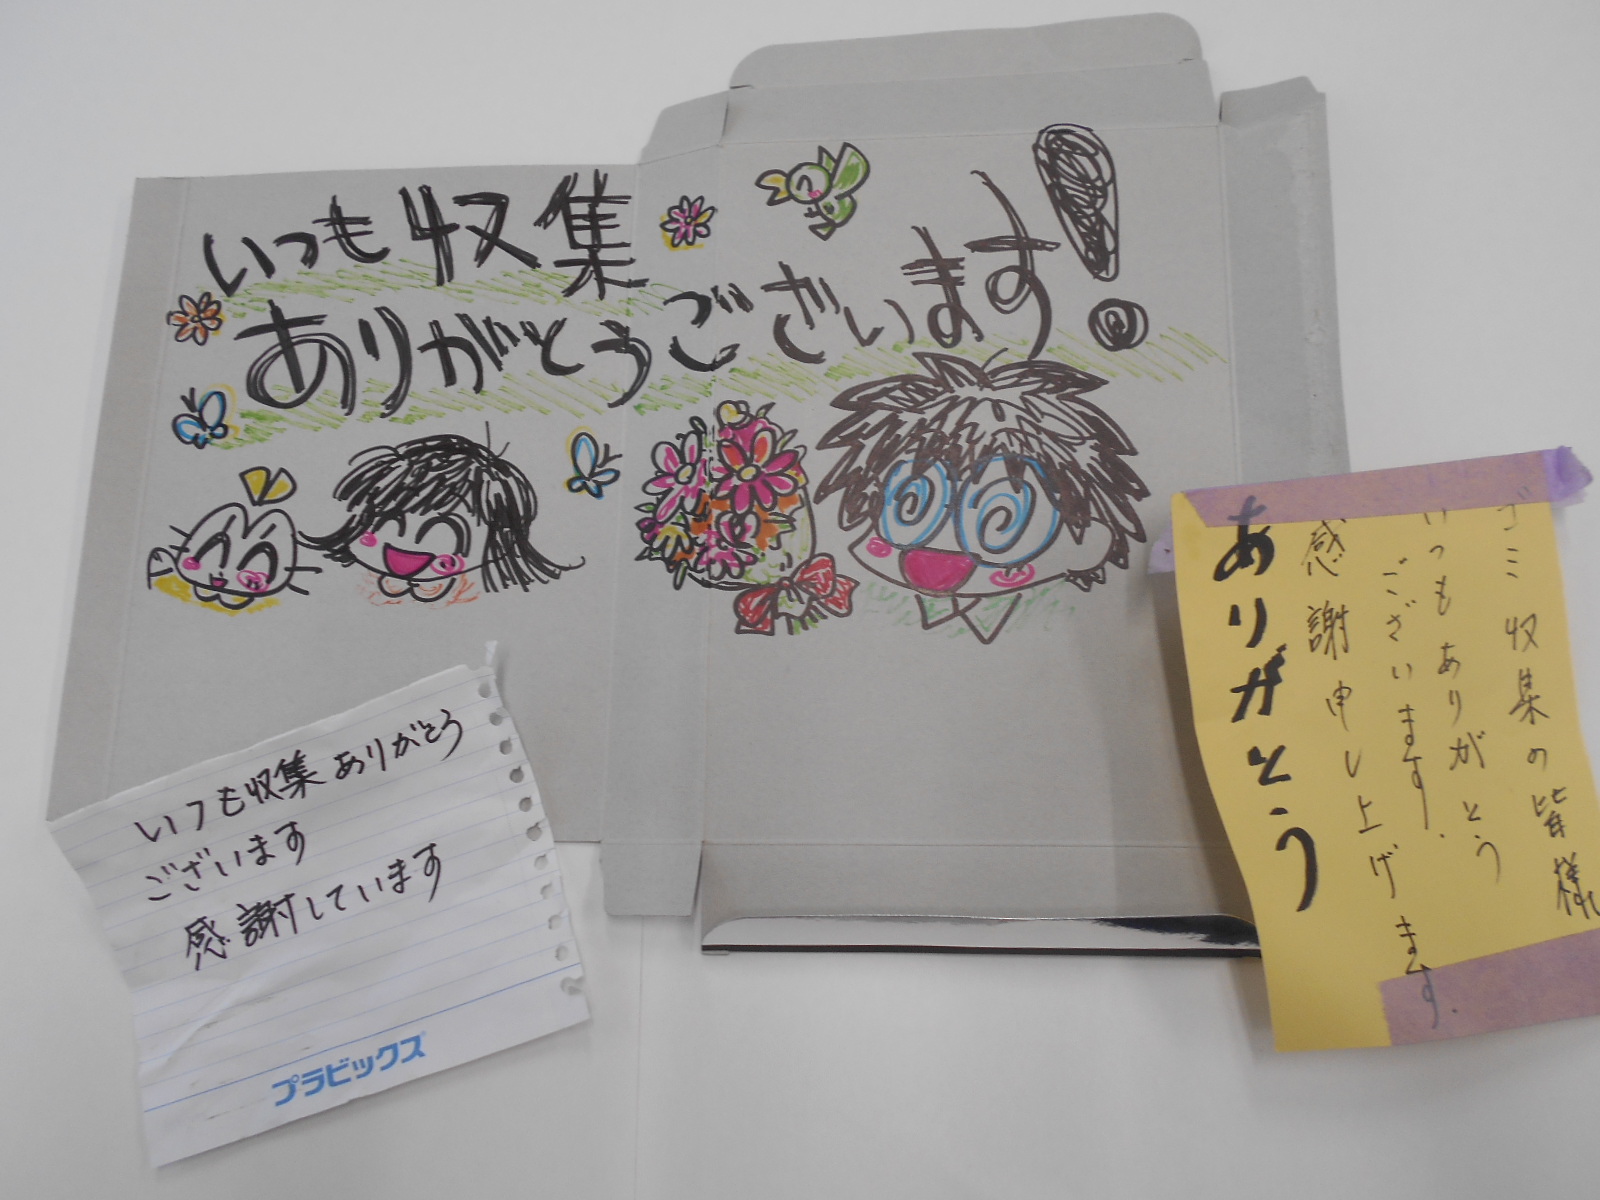 いつも収集
ありがとうございます!
いつも収集ありがとう
ございます
感謝しています
プラビックス
ゴミ収集の皆様
いつもありがとう
ございます.
感謝申し上げます.
ありがとう